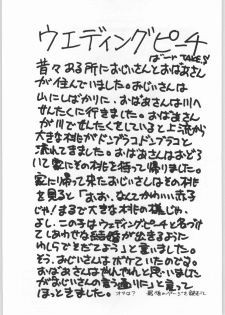 ウエディングピーチ
ばーど TAKE.S
昔々ある所におじいさんとおばあさん
が住んでいました。おじいさんは
山にしばかりに、おばあさんは川へ
せんたくに行きました。おばあさん
が川でせんたくをしていると上流から
大きな桃がドンブラコドンブラコと
流れてきました。おばあさんはおどろ
いて家にその桃を持って帰りました。
家に帰って来たおじいさんはその桃
を見ると「おお、なんてかわいい赤子
じゃ!まるで大きな桃の様じゃ、
よし、この子はウェディングピーチと名づけ
てしあわせな結婚が出来るように
わしらでそだてよう」と言いました。
そう、おじいさんはボケていたのでる。
おばあさんはやれやれと思いました
がおじいさんの言う通りに」と言って
ほっときました。
オワリ?
最後のページを読もう